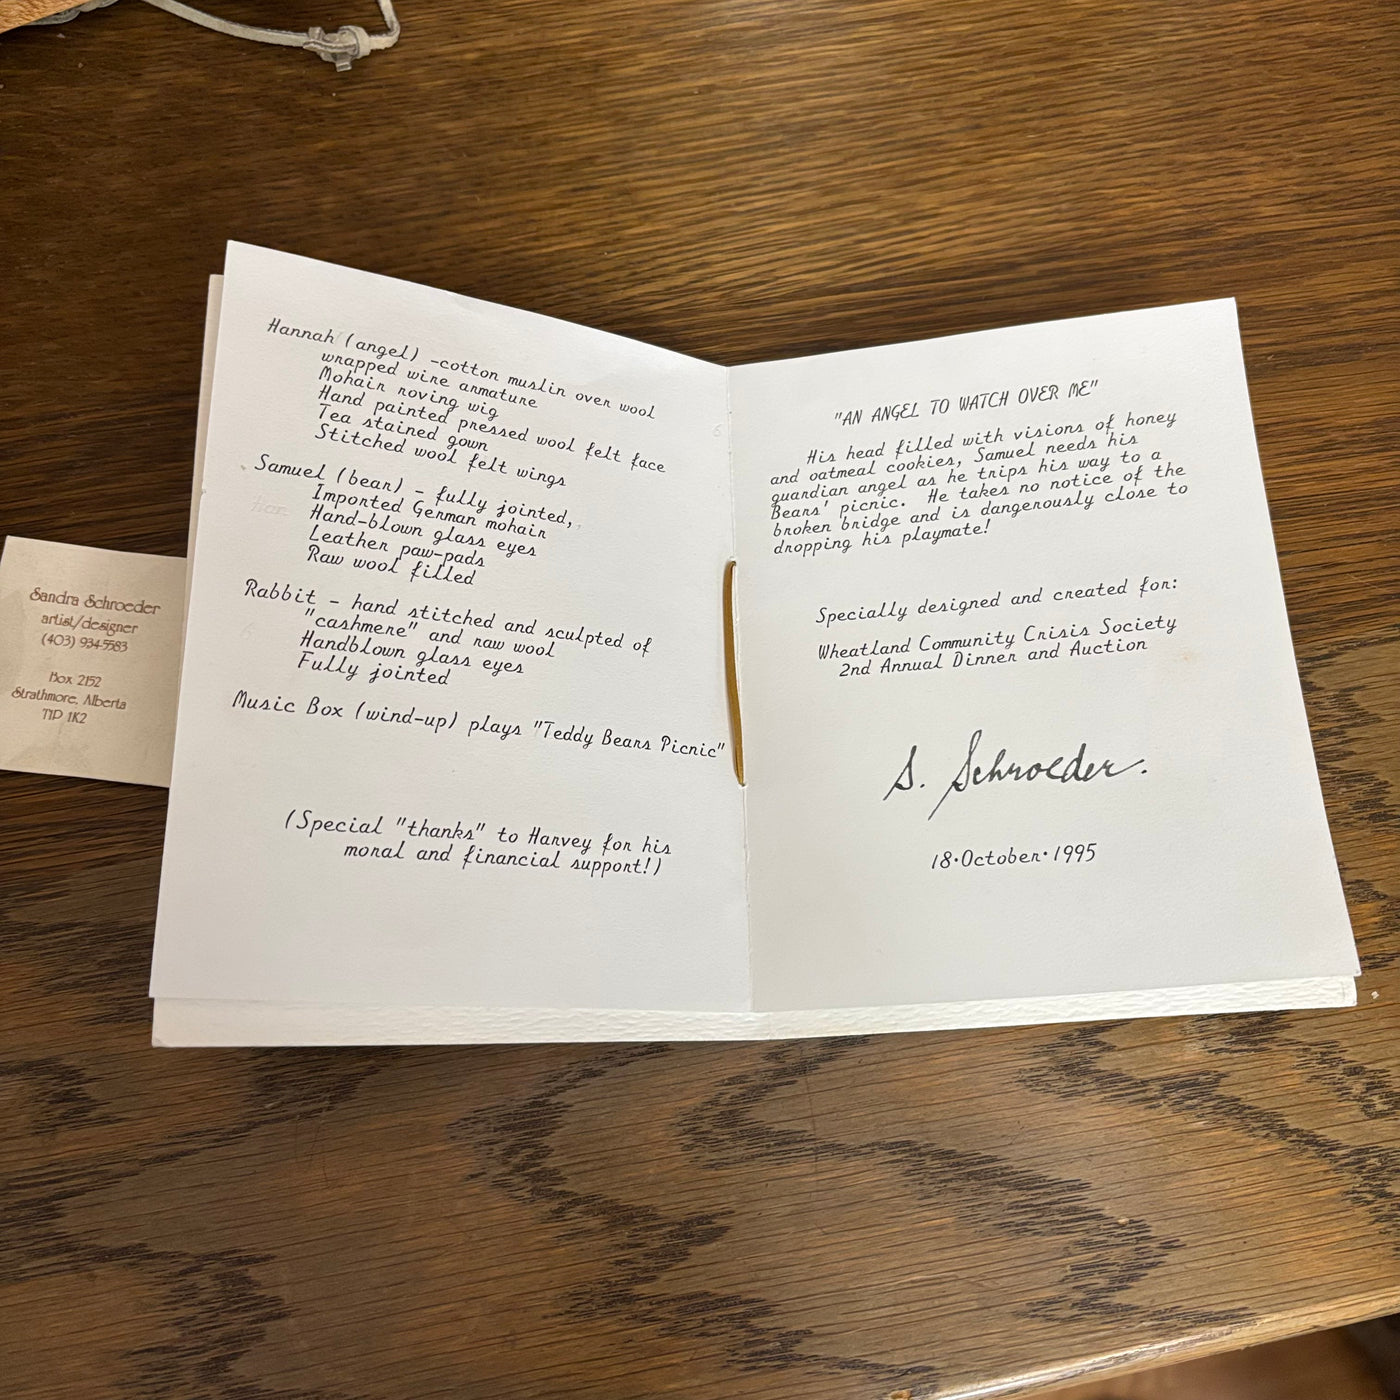 Sandra Schroeder
artist/designer
(403) 934-5583
Box 2152
Strathmore, Alberta
T1P 1K2
Hannah (angel) -cotton muslin over wool
wrapped wire armature
Mohair roving wig
Hand painted pressed wool felt face
Tea stained gown
Stitched wool felt wings
Samuel (bear) - fully jointed,
Imported German mohair
Hand-blown glass eyes
Leather paw-pads
Raw wool filled
Rabbit - hand stitched and sculpted of
"cashmere" and raw wool
Handblown glass eyes
Fully jointed
Music Box (wind-up) plays "Teddy Bears Picnic"
(Special "thanks" to Harvey for his
moral and financial support!)
"AN ANGEL TO WATCH OVER ME"
His head filled with visions of honey
and oatmeal cookies, Samuel needs his
guardian angel as he trips his way to a
Bears' picnic. He takes no notice of the
broken bridge and is dangerously close to
dropping his playmate!
Specially designed and created for:
Wheatland Community Crisis Society
2nd Annual Dinner and Auction
S. Schroeder.
18·October·1995